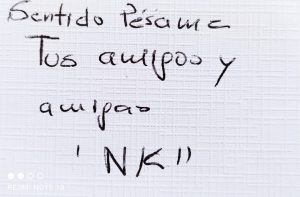 Sentido Pésame
Tus amigos y
amigas
"NK"
REDMI NOTE 13